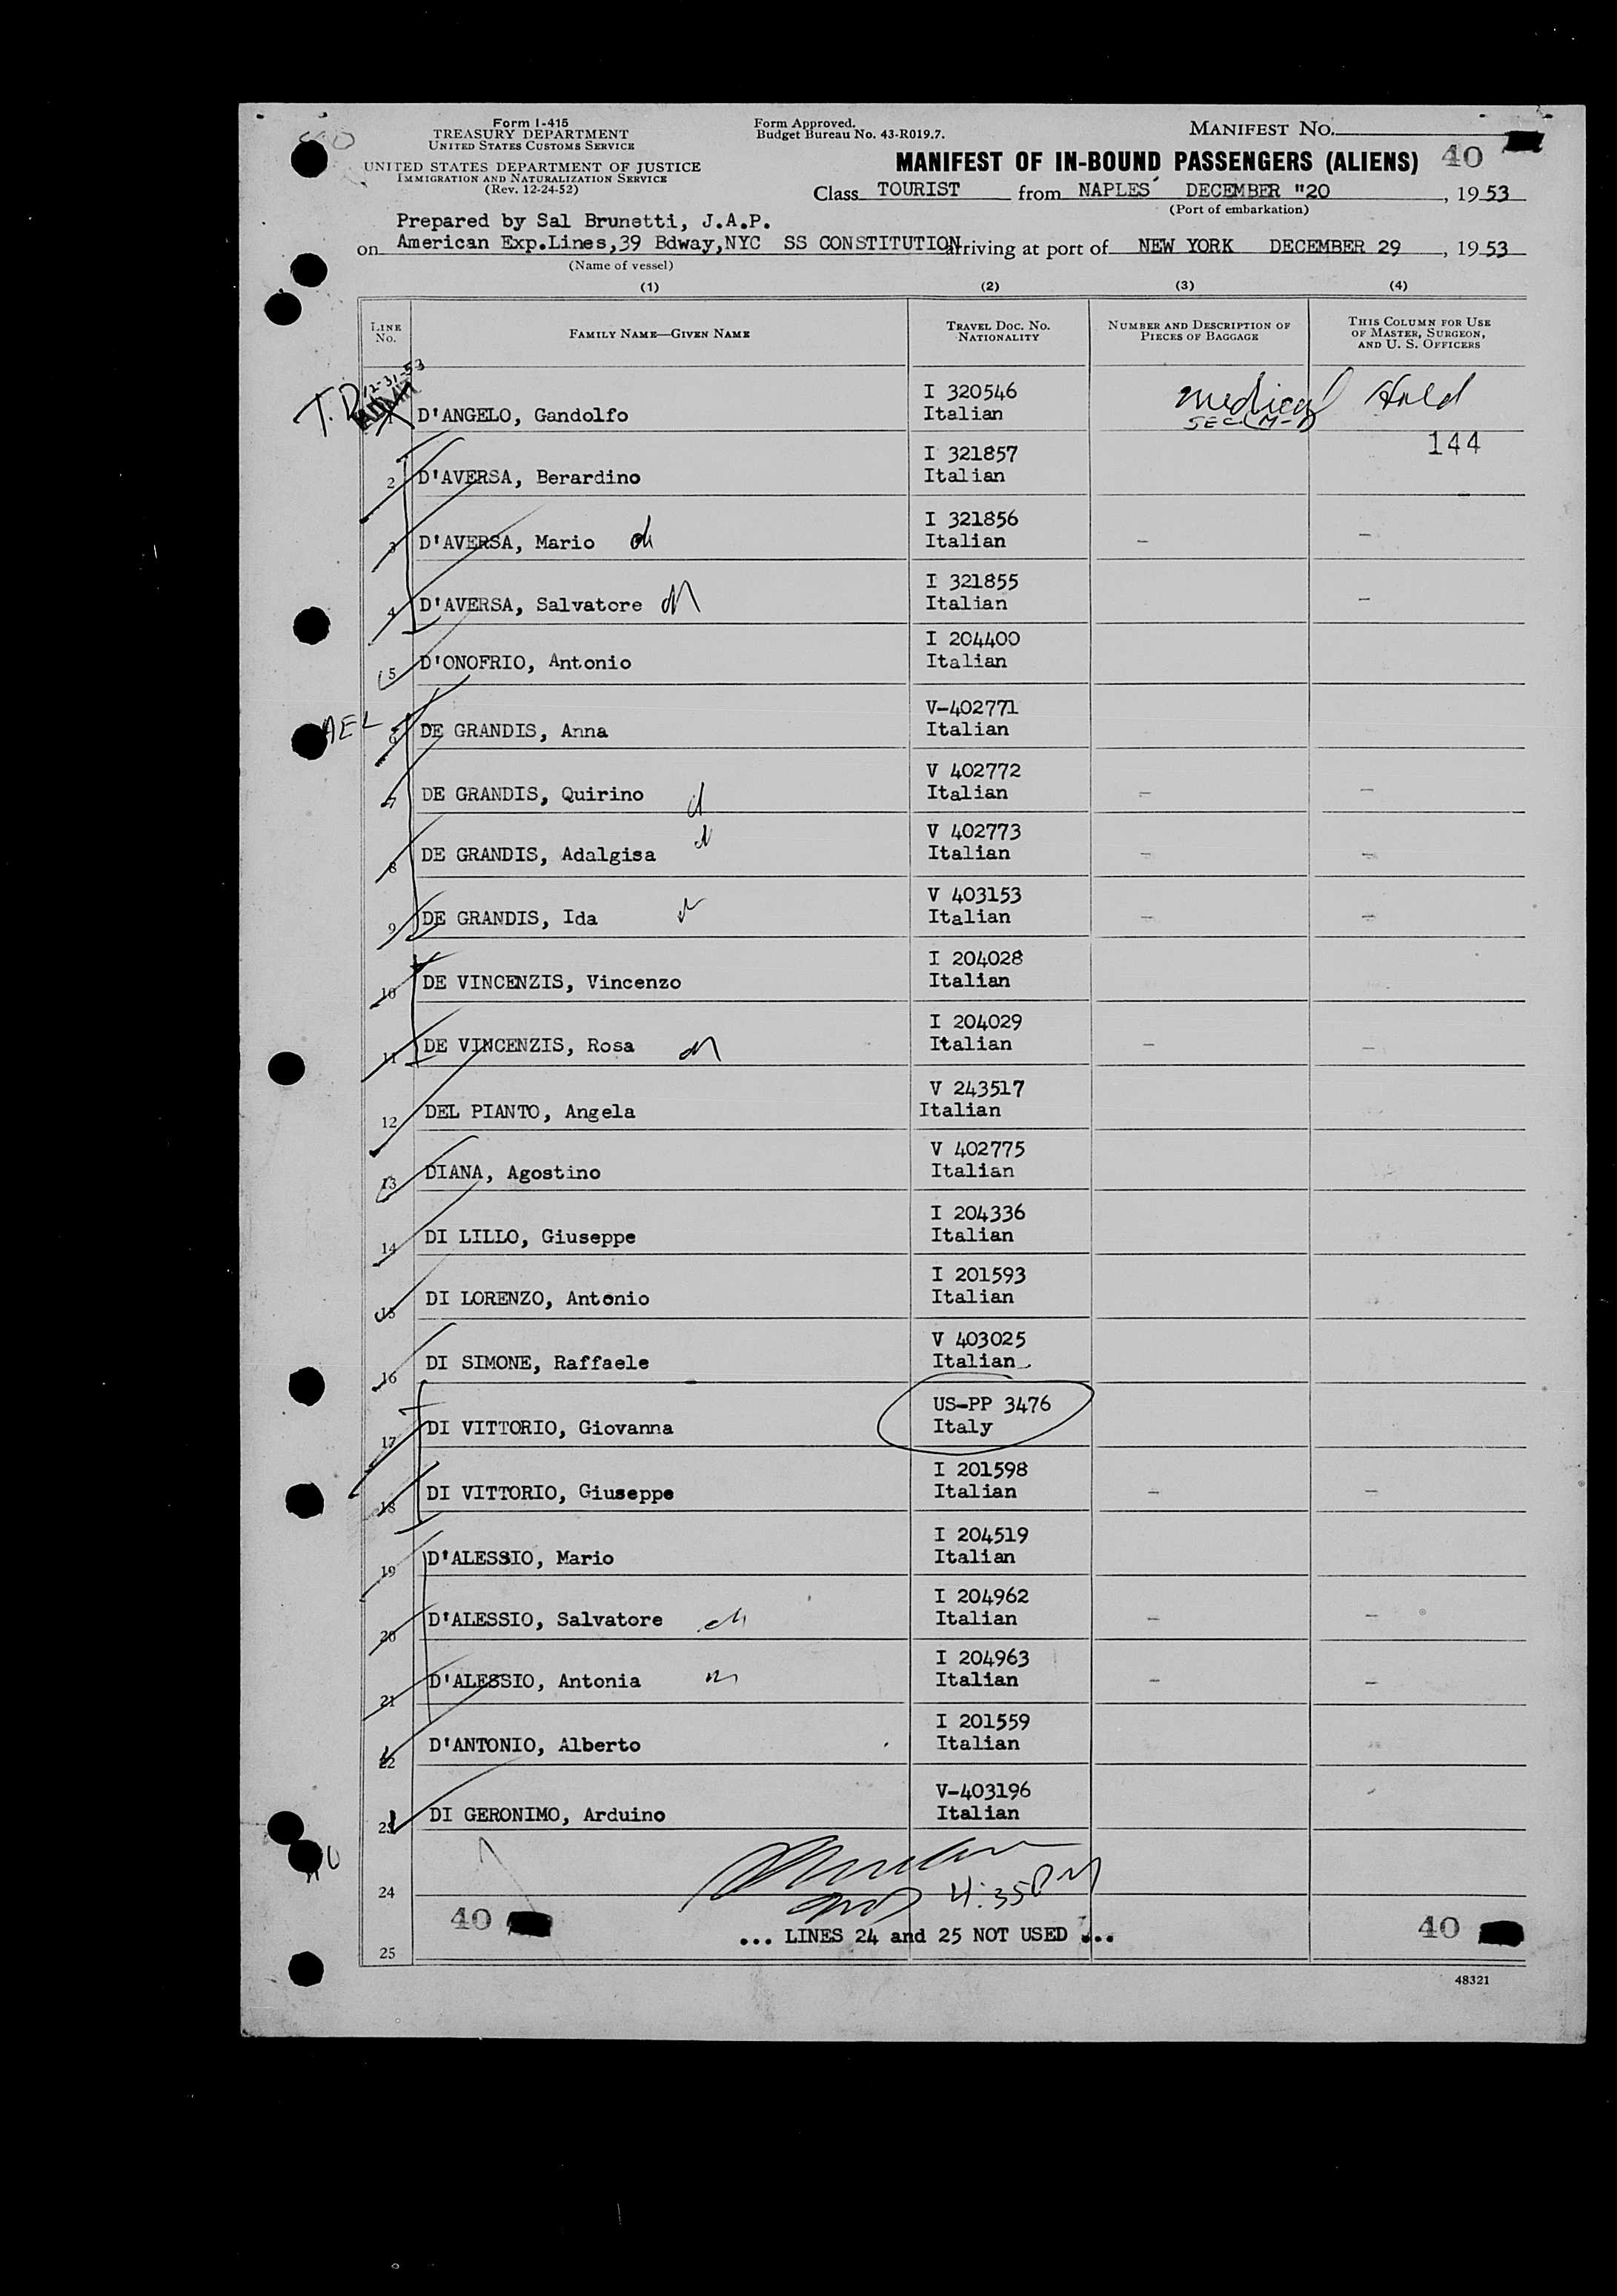 Form I-415
TREASURY DEPARTMENT
UNITED STATES CUSTOMS SERVICE
UNITED STATES DEPARTMENT OF JUSTICE
IMMIGRATION AND NATURALIZATION SERVICE
(Rev. 12-24-52)
Form Approved.
Budget Bureau No. 43-R019.7.
MANIFEST NO.
MANIFEST OF IN-BOUND PASSENGERS (ALIENS) 40
Class TOURIST from NAPLES DECEMBER "20, 1953
(Port of embarkation)
Prepared by Sal Brunetti, J.A.P.
on American Exp.Lines,39 Bdway,NYC SS CONSTITUTION arriving at port of NEW YORK DECEMBER 29, 1953
(Name of vessel)
(1) (2) (3) (4)
LINE No. FAMILY NAME—GIVEN NAME TRAVEL DOC. NO. NATIONALITY NUMBER AND DESCRIPTION OF PIECES OF BAGGAGE THIS COLUMN FOR USE OF MASTER, SURGEON, AND U. S. OFFICERS
T.D. 12-31-53
1 D'ANGELO, Gandolfo I 320546 Italian medical Hold
SEC.
144
2 D'AVERSA, Berardino I 321857 Italian
3 D'AVERSA, Mario I 321856 Italian - -
4 D'AVERSA, Salvatore I 321855 Italian -
5 D'ONOFRIO, Antonio I 204400 Italian
AEL
6 DE GRANDIS, Anna V-402771 Italian
7 DE GRANDIS, Quirino V 402772 Italian - -
8 DE GRANDIS, Adalgisa V 402773 Italian - -
9 DE GRANDIS, Ida V 403153 Italian - -
10 DE VINCENZIS, Vincenzo I 204028 Italian
11 DE VINCENZIS, Rosa I 204029 Italian - -
12 DEL PIANTO, Angela V 243517 Italian
13 DIANA, Agostino V 402775 Italian
14 DI LILLO, Giuseppe I 204336 Italian
15 DI LORENZO, Antonio I 201593 Italian
16 DI SIMONE, Raffaele V 403025 Italian
17 DI VITTORIO, Giovanna US-PP 3476 Italy
18 DI VITTORIO, Giuseppe I 201598 Italian - -
19 D'ALESSIO, Mario I 204519 Italian
20 D'ALESSIO, Salvatore I 204962 Italian - -
21 D'ALESSIO, Antonia I 204963 Italian - -
22 D'ANTONIO, Alberto I 201559 Italian
23 DI GERONIMO, Arduino V-403196 Italian
24 4:35 PM
40 40
... LINES 24 and 25 NOT USED ...
25
48321